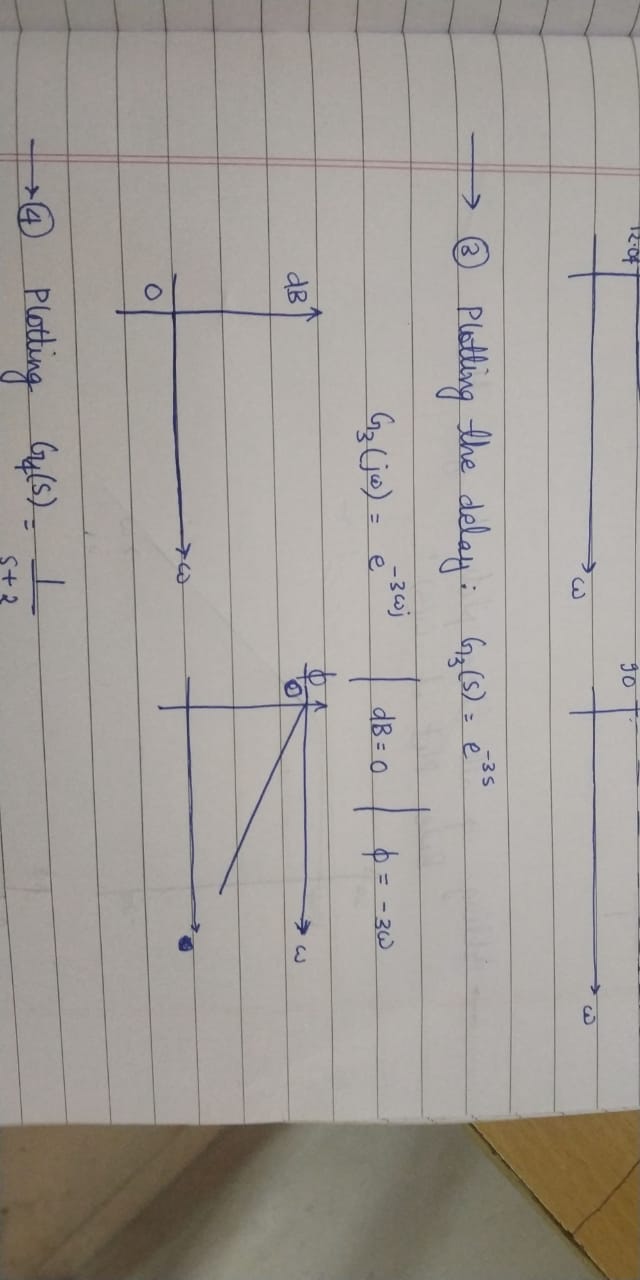 12.04 90
ω ω
→ ③ Plotting the delay: G₃(s) = e^-3s
G₃(jω) = e^-3ωj | dB = 0 | ϕ = -3ω
dB ϕ
0 ω
0 ω
→ ④ Plotting G₄(s) = 1/s+2